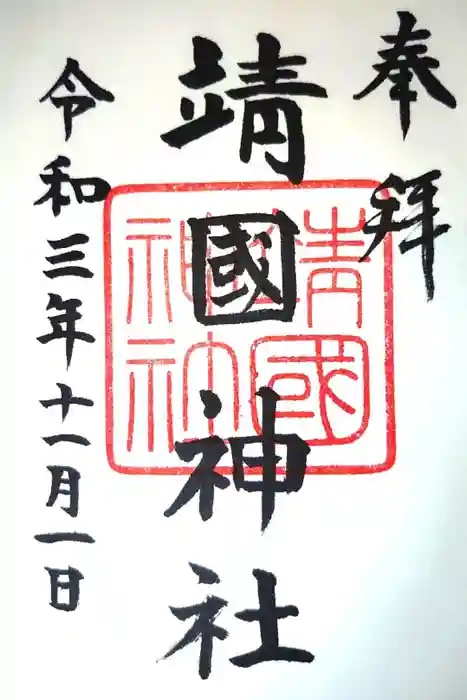 奉拝
靖國神社
靖國神社
令和三年十一月一日